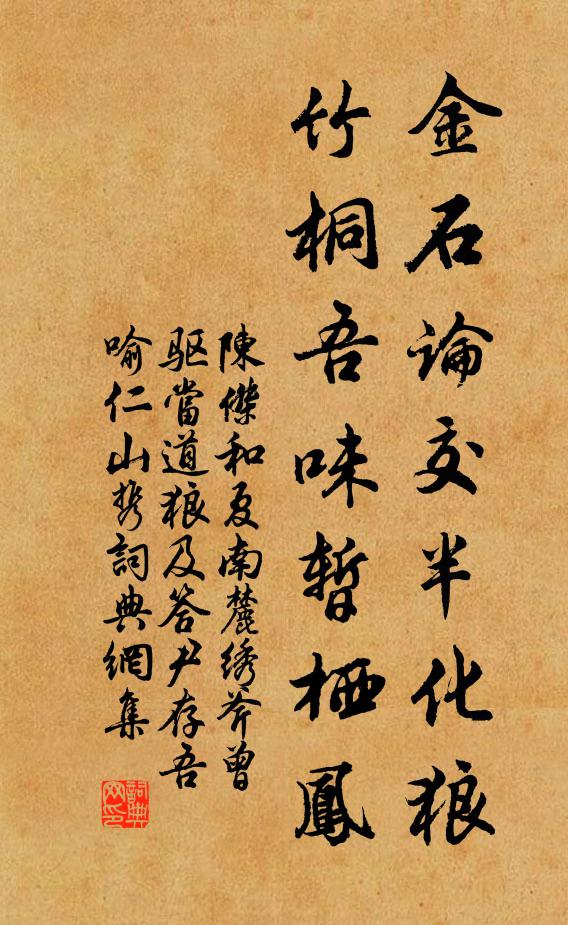 金石論交半化狼
竹桐吾味暫栖鳳
陳傑和夏南麓绣斧曾
驱當道狼及答尹存吾
喻仁山携詞典網集
詞典网印